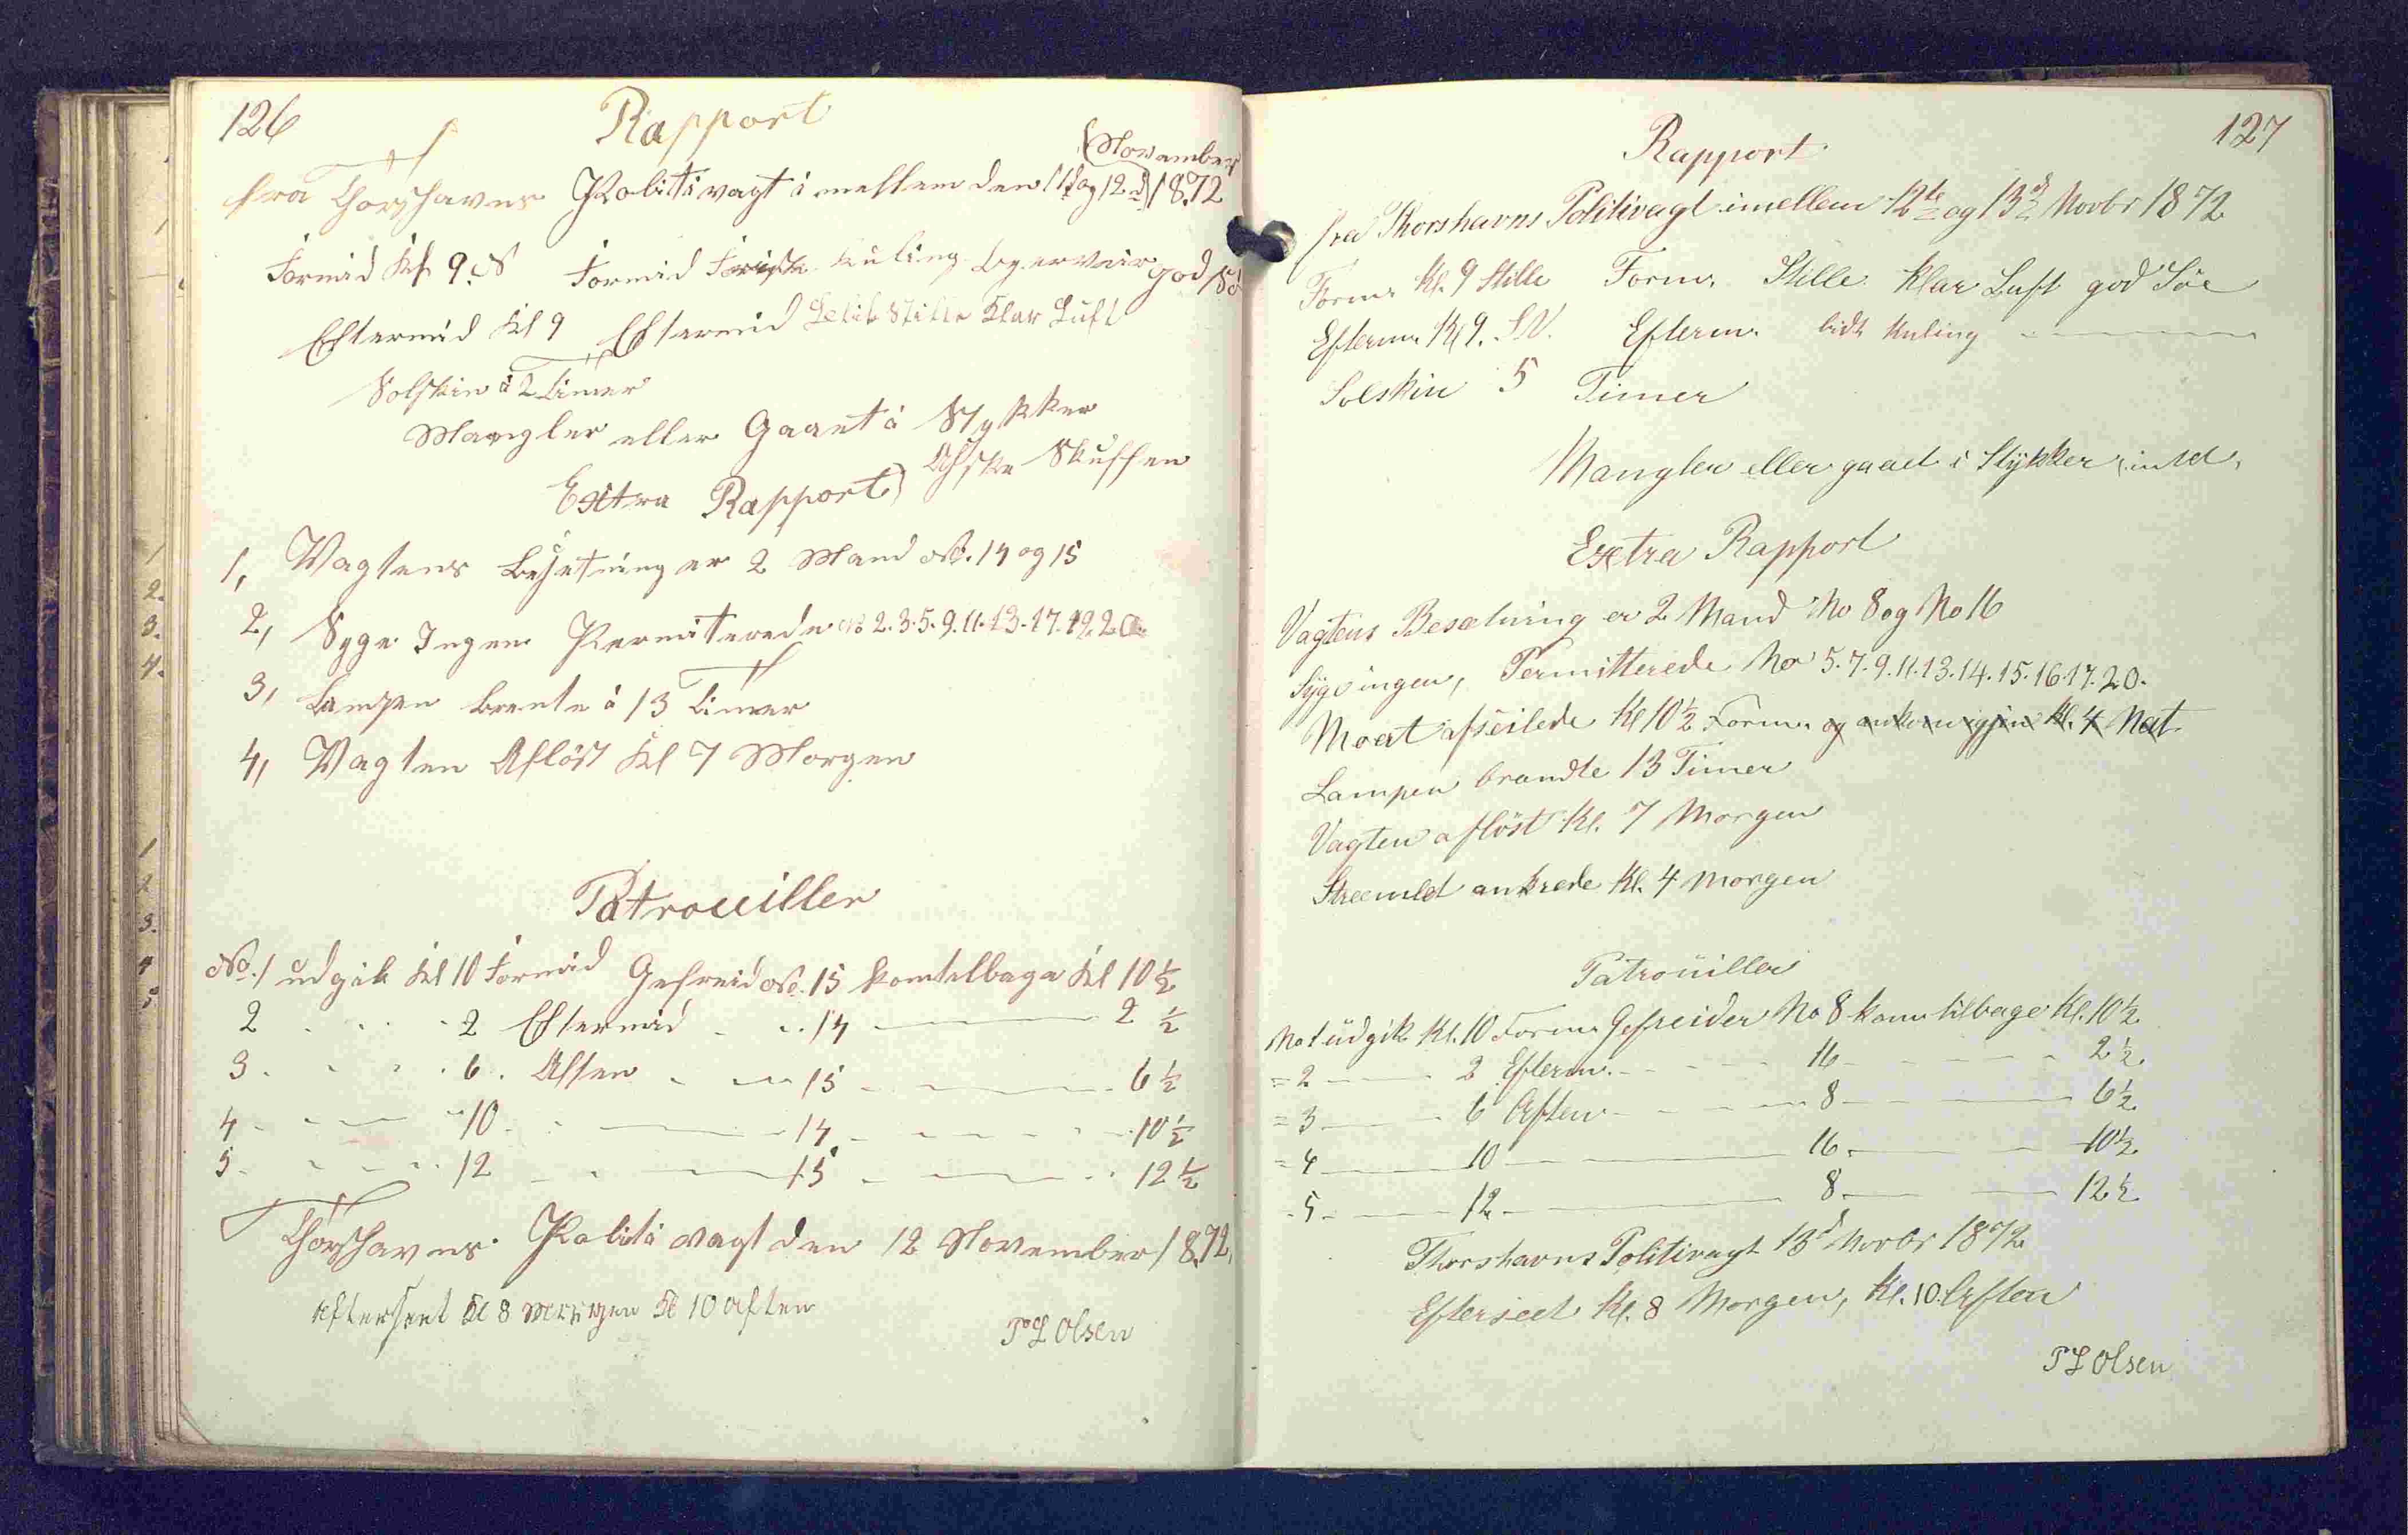 126
Rapport
fra Thorshavns Politivagt i mellem den 11 og 12 d November 1872
Formid Kl 9. S Formid Friisk Kuling bygeveir god Sö
Eftermid Kl 9 Eftermid Stille Klar Luft
Solskin i 2 Timer
Mangler eller Gaaet i Stykker
Aske Skuffen
Extra Rapport
1, Vagtens Besetning er 2 Mand No. 14 og 15
2, Syge Ingen Permiterede No 2.3.5.9.11.13.17.19.20
3, Lampen brente i 13 Timer
4, Vagten Aflöst Kl 7 Morgen
Patrouiller
No. 1 udgik Kl 10 Formid Gefreid No. 15 kom telbage Kl 10½
2 2 Eftermid 14 2½
3 6 Aften 15 6½
4 10 14 10½
5 12 15 12½
Thorshavns Politi vagt den 12 November 1872,
Efterseet Kl 8 Morgen Kl 10 Aften
P L Olsen
127
Rapport
fra Thorshavns Politivagt imellem 12te og 13d Novbr 1872
Form. Kl. 9 Stille Form. Stille Klar Luft god Söe
Efterm. Kl 9. SV. Efterm. lidt Kuling
Solskin 5 Timer
Mangler eller gaaet i Stykker, intet,
Extra Rapport
Vagtens Besætning er 2 Mand No 8 og No 16
Syge ingen, Permitterede No 5.7.9.11.13.14.15.16.17.20.
afseilede Kl 10½ Form. og ankom igjen Kl. 4 Nat
Lampen brandte 13 Timer
Vagten aflöst Kl. 7 Morgen
ankrede Kl. 4 Morgen
Patroüiller
No 1 üdgik Kl. 10 Form. Gefreider No 8 kom tilbage Kl. 10½
= 2 2 Efterm. 16 2½
= 3 6 Aften 8 6½
= 4 10 16 10½
- 5 12 8 12½
Thorshavns Politivagt 13d Novbr 1872
Efterseet Kl. 8 Morgen, Kl. 10 Aften
P L Olsen